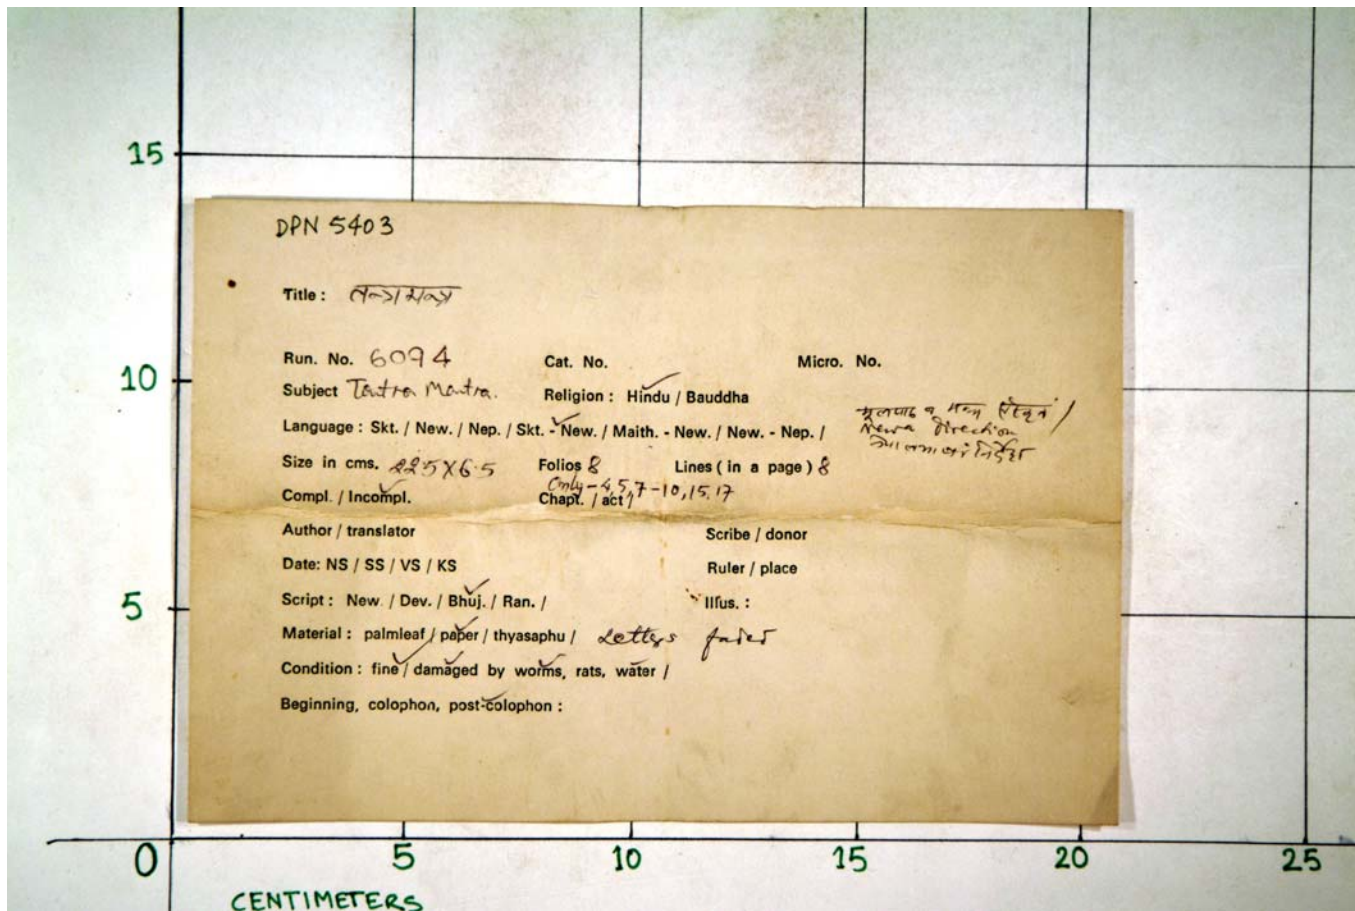 DPN 5403
Title : तन्त्रमन्त्र
Run. No. 6094 Cat. No. Micro. No.
Subject Tantra Mantra. Religion : Hindu / Bauddha
Language : Skt. / New. / Nep. / Skt. - New. / Maith. - New. / New. - Nep. /
मूलपाठ व मन्त्र संस्कृतं /
Newa Direction
Size in cms. 22.5 X 6.5 Folios 8 Lines ( in a page ) 8
Only - 4,5,7-10,15,17
Compl. / Incompl. Chapt. / act /
Author / translator Scribe / donor
Date: NS / SS / VS / KS Ruler / place
Script : New. / Dev. / Bhuj. / Ran. / Illus. :
Material : palmleaf / paper / thyasaphu / Letters faded
Condition : fine / damaged by worms, rats, water /
Beginning, colophon, post-colophon :
15
10
5
0 5 10 15 20 25
CENTIMETERS